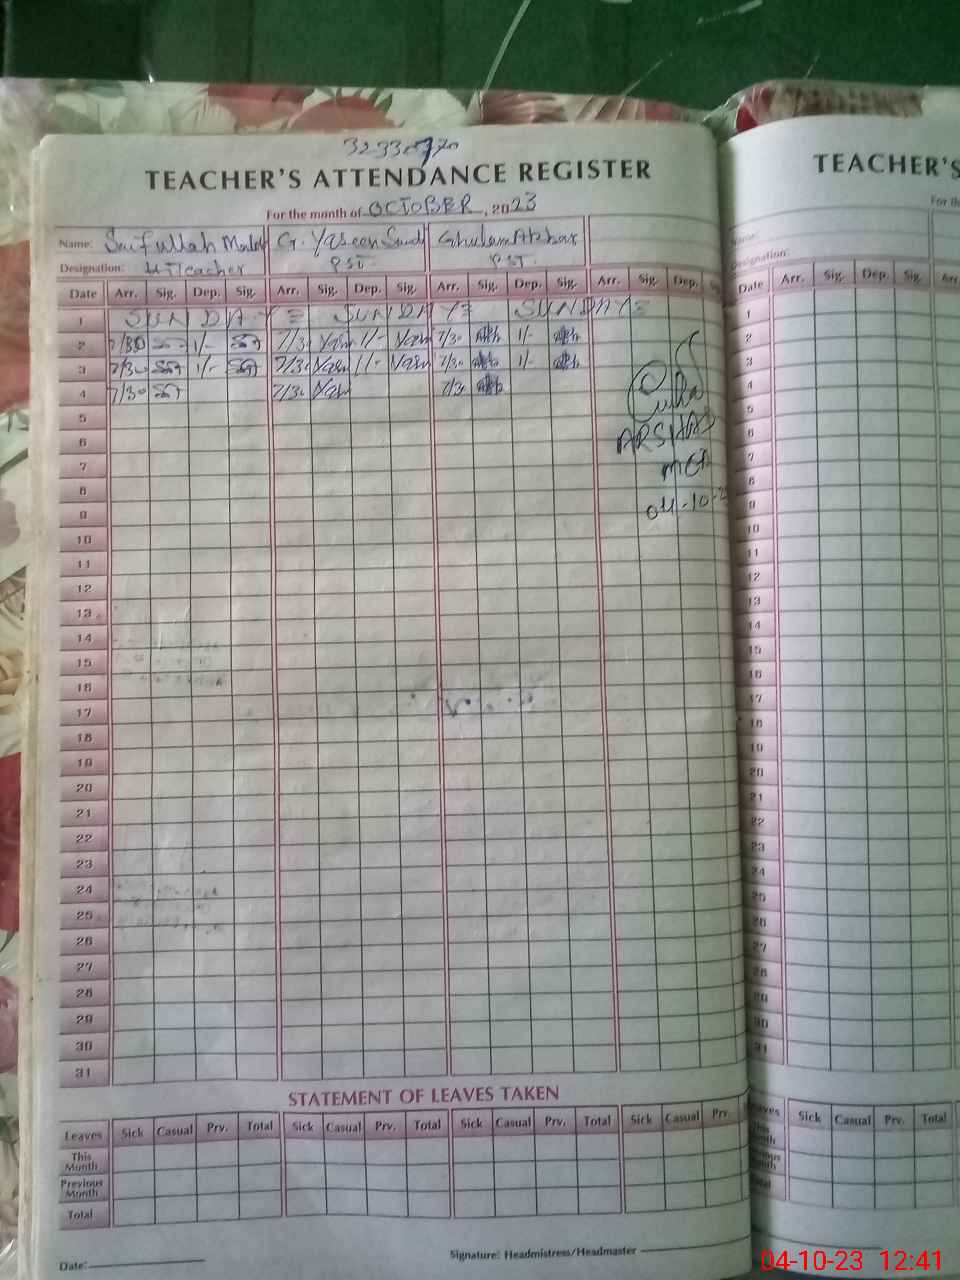 TEACHER'S ATTENDANCE REGISTER
For the month of OCTOBER, 2023
Name: Saifullah G. Yaseen Ghulam Akbar
Designation: H Teacher PST PST
Date Arr. Sig. Dep. Sig. Arr. Sig. Dep. Sig. Arr. Sig. Dep. Sig. Arr. Sig. Dep. Sig.
1 SUNDAY SUNDAY SUNDAY
2 7/30 1/- 7/30 Yasn 1/- Yasn 7/30 1/-
3 7/30 1/- 7/30 Yasn 1/- Yasn 7/30 1/-
4 7/30 7/30 Yasn 7/30
ARSHAD
MEA
04-10-
5
6
7
8
9
10
11
12
13
14
15
16
17
18
19
20
21
22
23
24
25
26
27
28
29
30
31
STATEMENT OF LEAVES TAKEN
Leaves Sick Casual Prv. Total Sick Casual Prv. Total Sick Casual Prv. Total Sick Casual Prv.
This Month
Previous Month
Total
Date:
Signature: Headmistress/Headmaster
TEACHER'S
For th
Name:
Designation:
Date Arr. Sig. Dep. Sig. Arr.
1
2
3
4
5
6
7
8
9
10
11
12
13
14
15
16
17
18
19
20
21
22
23
24
25
26
27
28
29
30
31
Sick Casual Prv. Total
04-10-23 12:41